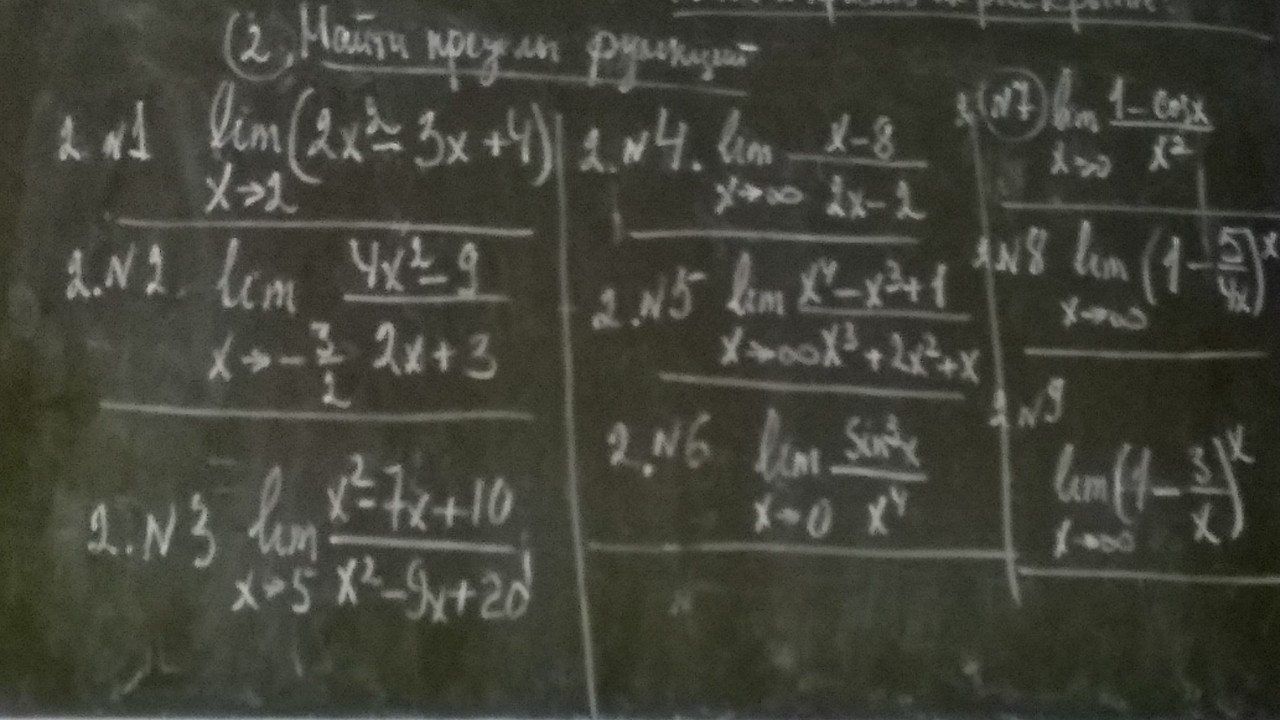 2. Найти пределы функций
2.N1 lim (2x² - 3x + 4)
x→2
2.N2 lim 4x² - 9
x→ -3/2 2x + 3
2.N3 lim x² - 7x + 10
x→5 x² - 9x + 20
2.N4. lim x - 8
x→∞ 2x - 2
2.N5 lim x⁴ - x³ + 1
x→∞ x³ + 2x² + x
2.N6 lim
x→0 x⁴
N7 lim 1 - cos x
x² 
2.N8 lim (1 - 5/4x)ˣ
x→∞
2.N9
lim (1 - 3/x)ˣ
x→∞